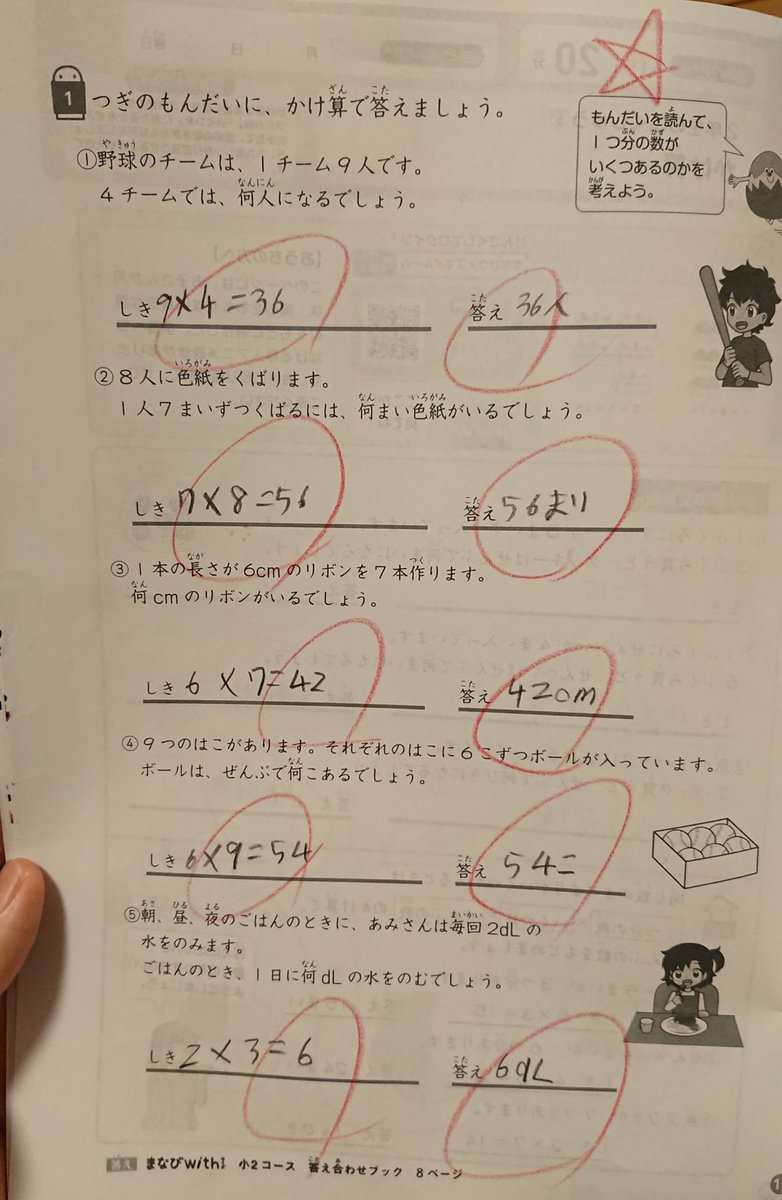 1 つぎのもんだいに、かけ算で答えましょう。
もんだいを読んで、
1つ分の数が
いくつあるのかを
考えよう。
①野球のチームは、1チーム9人です。
4チームでは、何人になるでしょう。
しき 9×4=36 答え 36人
②8人に色紙をくばります。
1人7まいずつくばるには、何まい色紙がいるでしょう。
しき 7×8=56 答え 56まい
③1本の長さが6cmのリボンを7本作ります。
何cmのリボンがいるでしょう。
しき 6×7=42 答え 42cm
④9つのはこがあります。それぞれのはこに6こずつボールが入っています。
ボールは、ぜんぶで何こあるでしょう。
しき 6×9=54 答え 54こ
⑤朝、昼、夜のごはんのときに、あみさんは毎回2dLの
水をのみます。
ごはんのとき、1日に何dLの水をのむでしょう。
しき 2×3=6 答え 6dL
答え まなびwith 小2コース 答え合わせブック 8ページ